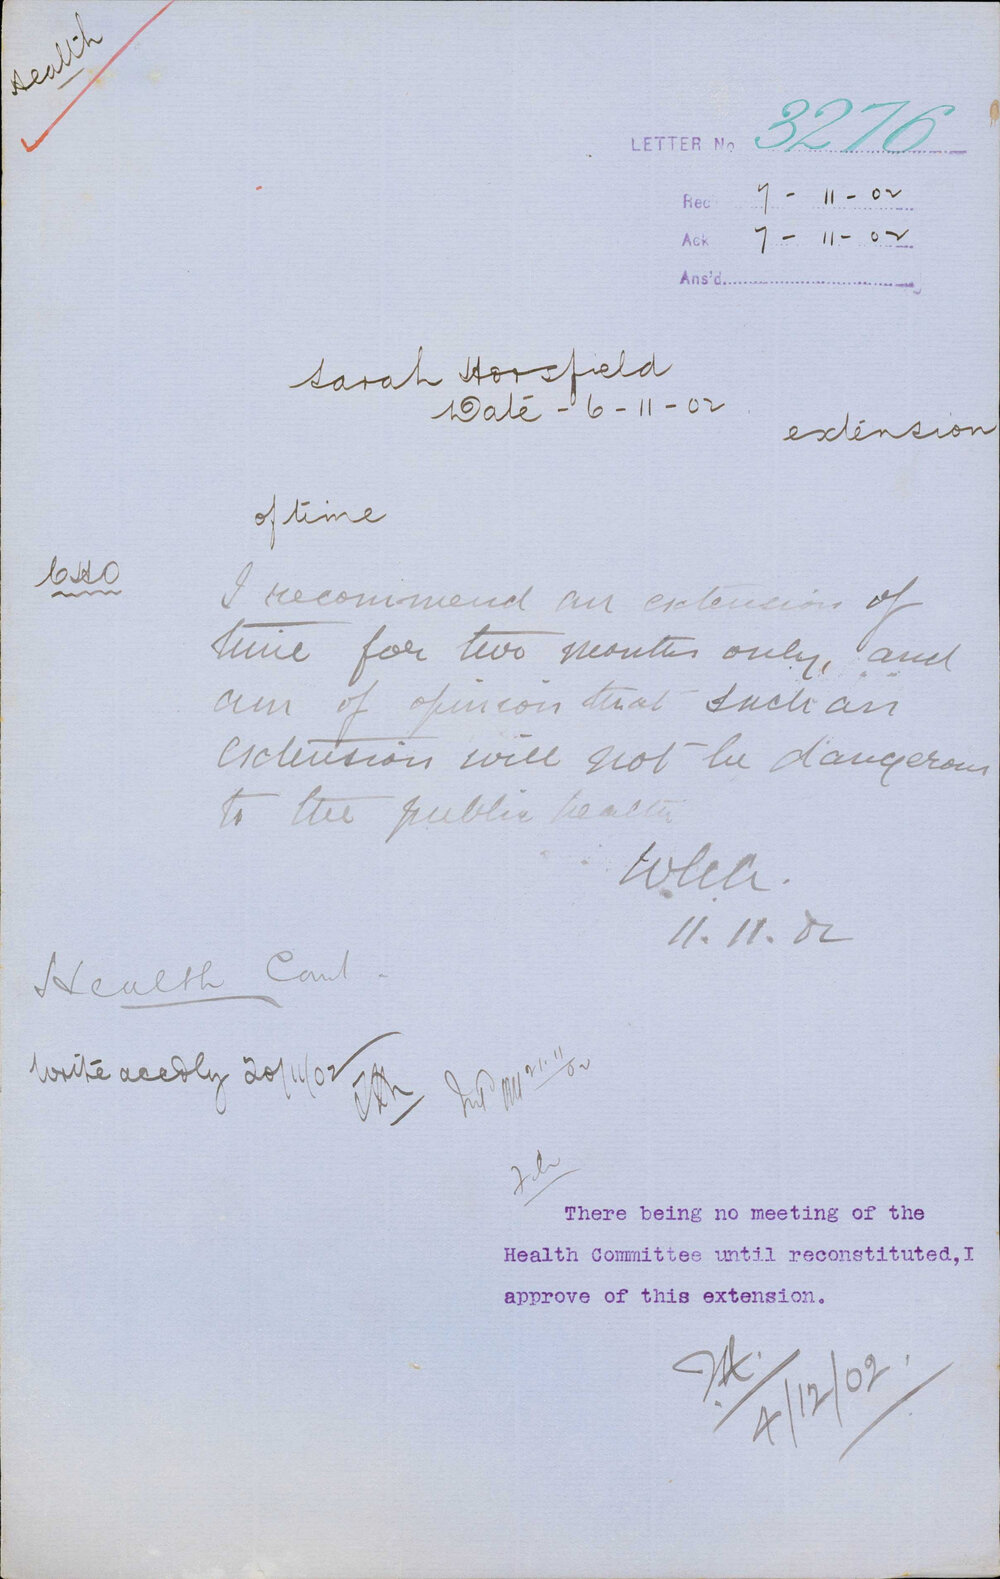 Health
LETTER No 3276
Rec 7-11-02
Ack 7-11-02
Ans'd
Sarah Horsfield
Date - 6-11-02
extension
of time
CHO
I recommend an extension of
time for two months only, and
am of opinion that such an
extension will not be dangerous
to the public health
11.11.02
Health Comt.
Write accdly 20/11/02
21.11.02
There being no meeting of the
Health Committee until reconstituted, I
approve of this extension.
4/12/02.